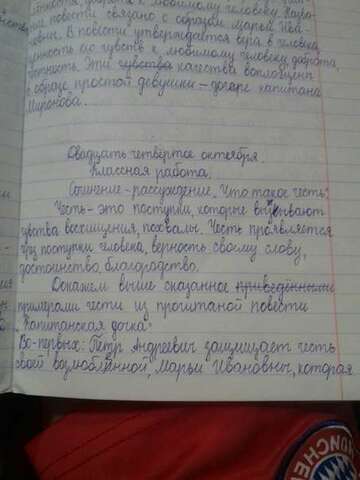 любимому человеку. Назва-
ние повести связано с образом Марьи Ива-
новны. В повести утверждается вера в человека,
ценность его чувств к любимому человеку, доброта,
честность. Эти чувства качества воплощены
в образе простой девушки – дочери капитана
Миронова.
Двадцать четвертое октября.
Классная работа.
Сочинение-рассуждение. Что такое честь?
Честь – это поступки, которые вызывают
чувства восхищения, похвалы. Честь проявляется
через поступки человека, верность своему слову,
достоинство, благородство.
Докажем выше сказанное приведёнными
примерами чести из прочитаной повести
„Капитанская дочка".
Во-первых: Пётр Андреевич защищает честь
своей возлюбленной, Марьи Ивановны, которая
MÜNCHEN